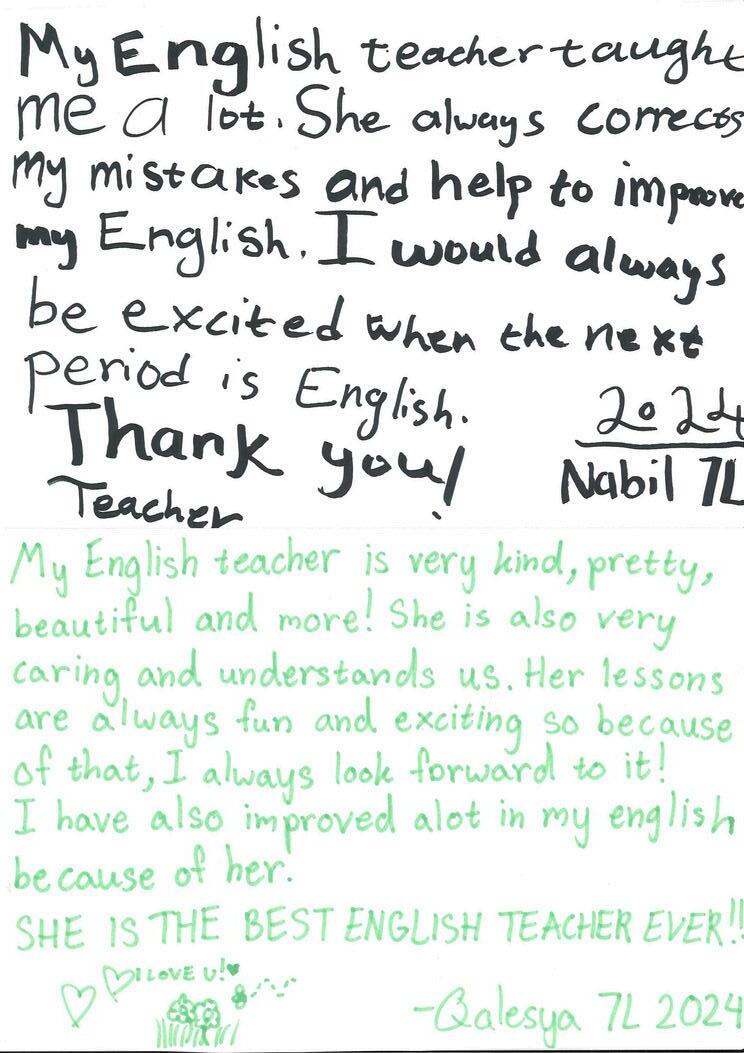 My English teacher taught
me a lot. She always corrects
my mistakes and help to improve
my English. I would always
be excited when the next
period is English.
Thank you!
Teacher
2024
Nabil 7L
My English teacher is very kind, pretty,
beautiful and more! She is also very
caring and understands us. Her lessons
are always fun and exciting so because
of that, I always look forward to it!
I have also improved alot in my english
because of her.
SHE IS THE BEST ENGLISH TEACHER EVER!!
I LOVE U!
-Qalesya 7L 2024